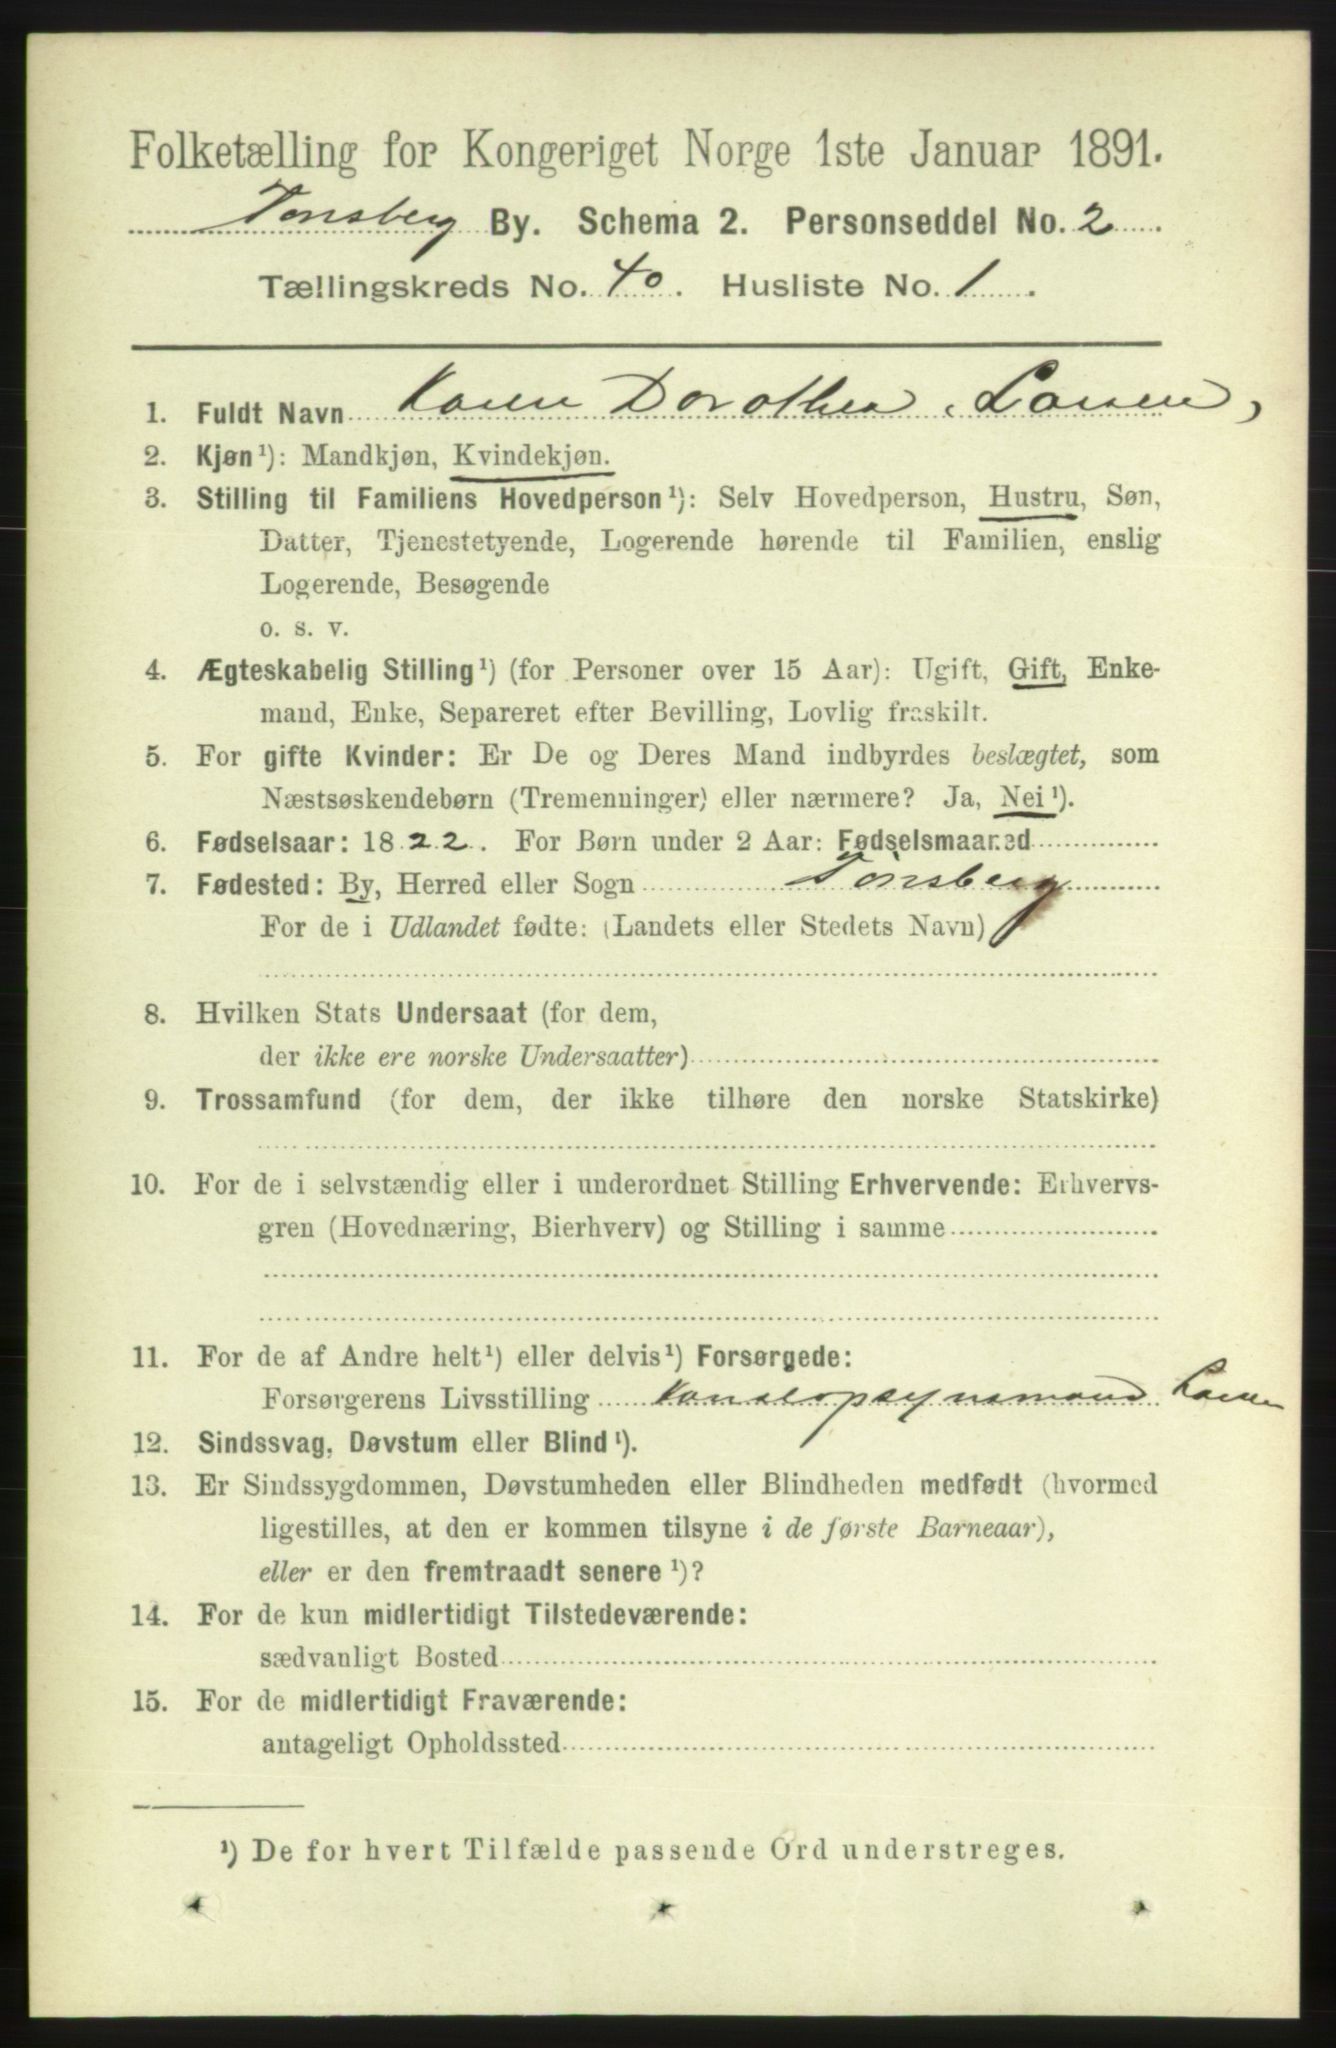 Folketælling for Kongeriget Norge 1ste Januar 1891.
Tønsberg By. Schema 2. Personseddel No. 2
Tællingskreds No. 40. Husliste No. 1.
1. Fuldt Navn Karen Dorothea Larsen,
2. Kjøn¹): Mandkjøn, Kvindekjøn.
3. Stilling til Familiens Hovedperson¹): Selv Hovedperson, Hustru, Søn,
Datter, Tjenestetyende, Logerende hørende til Familien, enslig
Logerende, Besøgende
o. s. v.
4. Ægteskabelig Stilling¹) (for Personer over 15 Aar): Ugift, Gift, Enke-
mand, Enke, Separeret efter Bevilling, Lovlig fraskilt.
5. For gifte Kvinder: Er De og Deres Mand indbyrdes beslægtet, som
Næstsøskendebørn (Tremenninger) eller nærmere? Ja, Nei¹).
6. Fødselsaar: 1822. For Børn under 2 Aar: Fødselsmaaned
7. Fødested: By, Herred eller Sogn Tønsberg
For de i Udlandet fødte: (Landets eller Stedets Navn)
8. Hvilken Stats Undersaat (for dem,
der ikke ere norske Undersaatter)
9. Trossamfund (for dem, der ikke tilhøre den norske Statskirke)
10. For de i selvstændig eller i underordnet Stilling Erhvervende: Erhvervs-
gren (Hovednæring, Bierhverv) og Stilling i samme
11. For de af Andre helt¹) eller delvis¹) Forsørgede:
Forsørgerens Livsstilling Larsen
12. Sindssvag, Døvstum eller Blind¹).
13. Er Sindssygdommen, Døvstumheden eller Blindheden medfødt (hvormed
ligestilles, at den er kommen tilsyne i de første Barneaar),
eller er den fremtraadt senere¹)?
14. For de kun midlertidigt Tilstedeværende:
sædvanligt Bosted
15. For de midlertidigt Fraværende:
antageligt Opholdssted
¹) De for hvert Tilfælde passende Ord understreges.